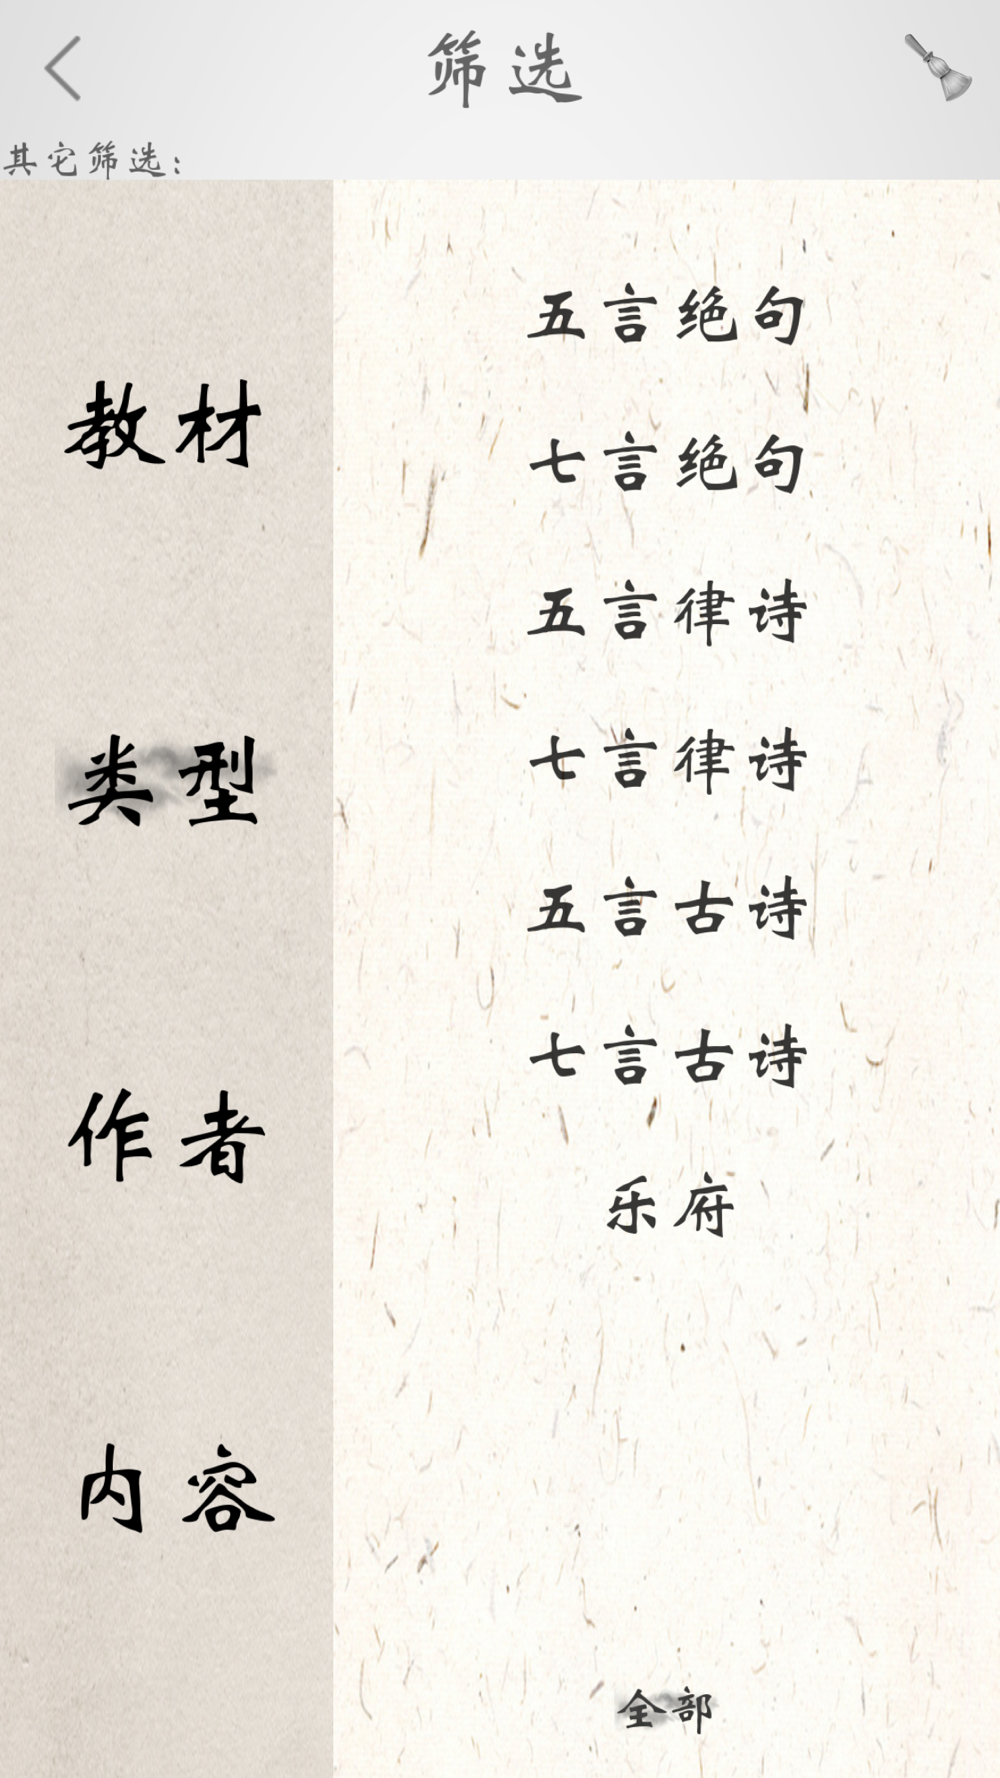 筛选
其它筛选：
教材
类型
作者
内容
五言绝句
七言绝句
五言律诗
七言律诗
五言古诗
七言古诗
乐府
全部